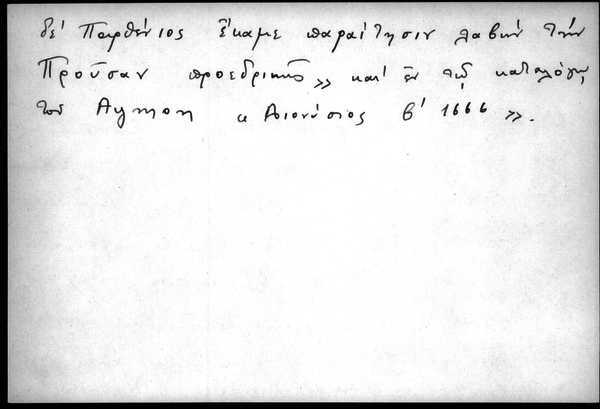 δέ Παρθένιος ἔκαμε παραίτησιν λαβών τήν
Προῦσαν προεδρικῶς» καί ἐν τῷ καταλόγῳ
τοῦ Aymon « Διονύσιος β' 1666 ».